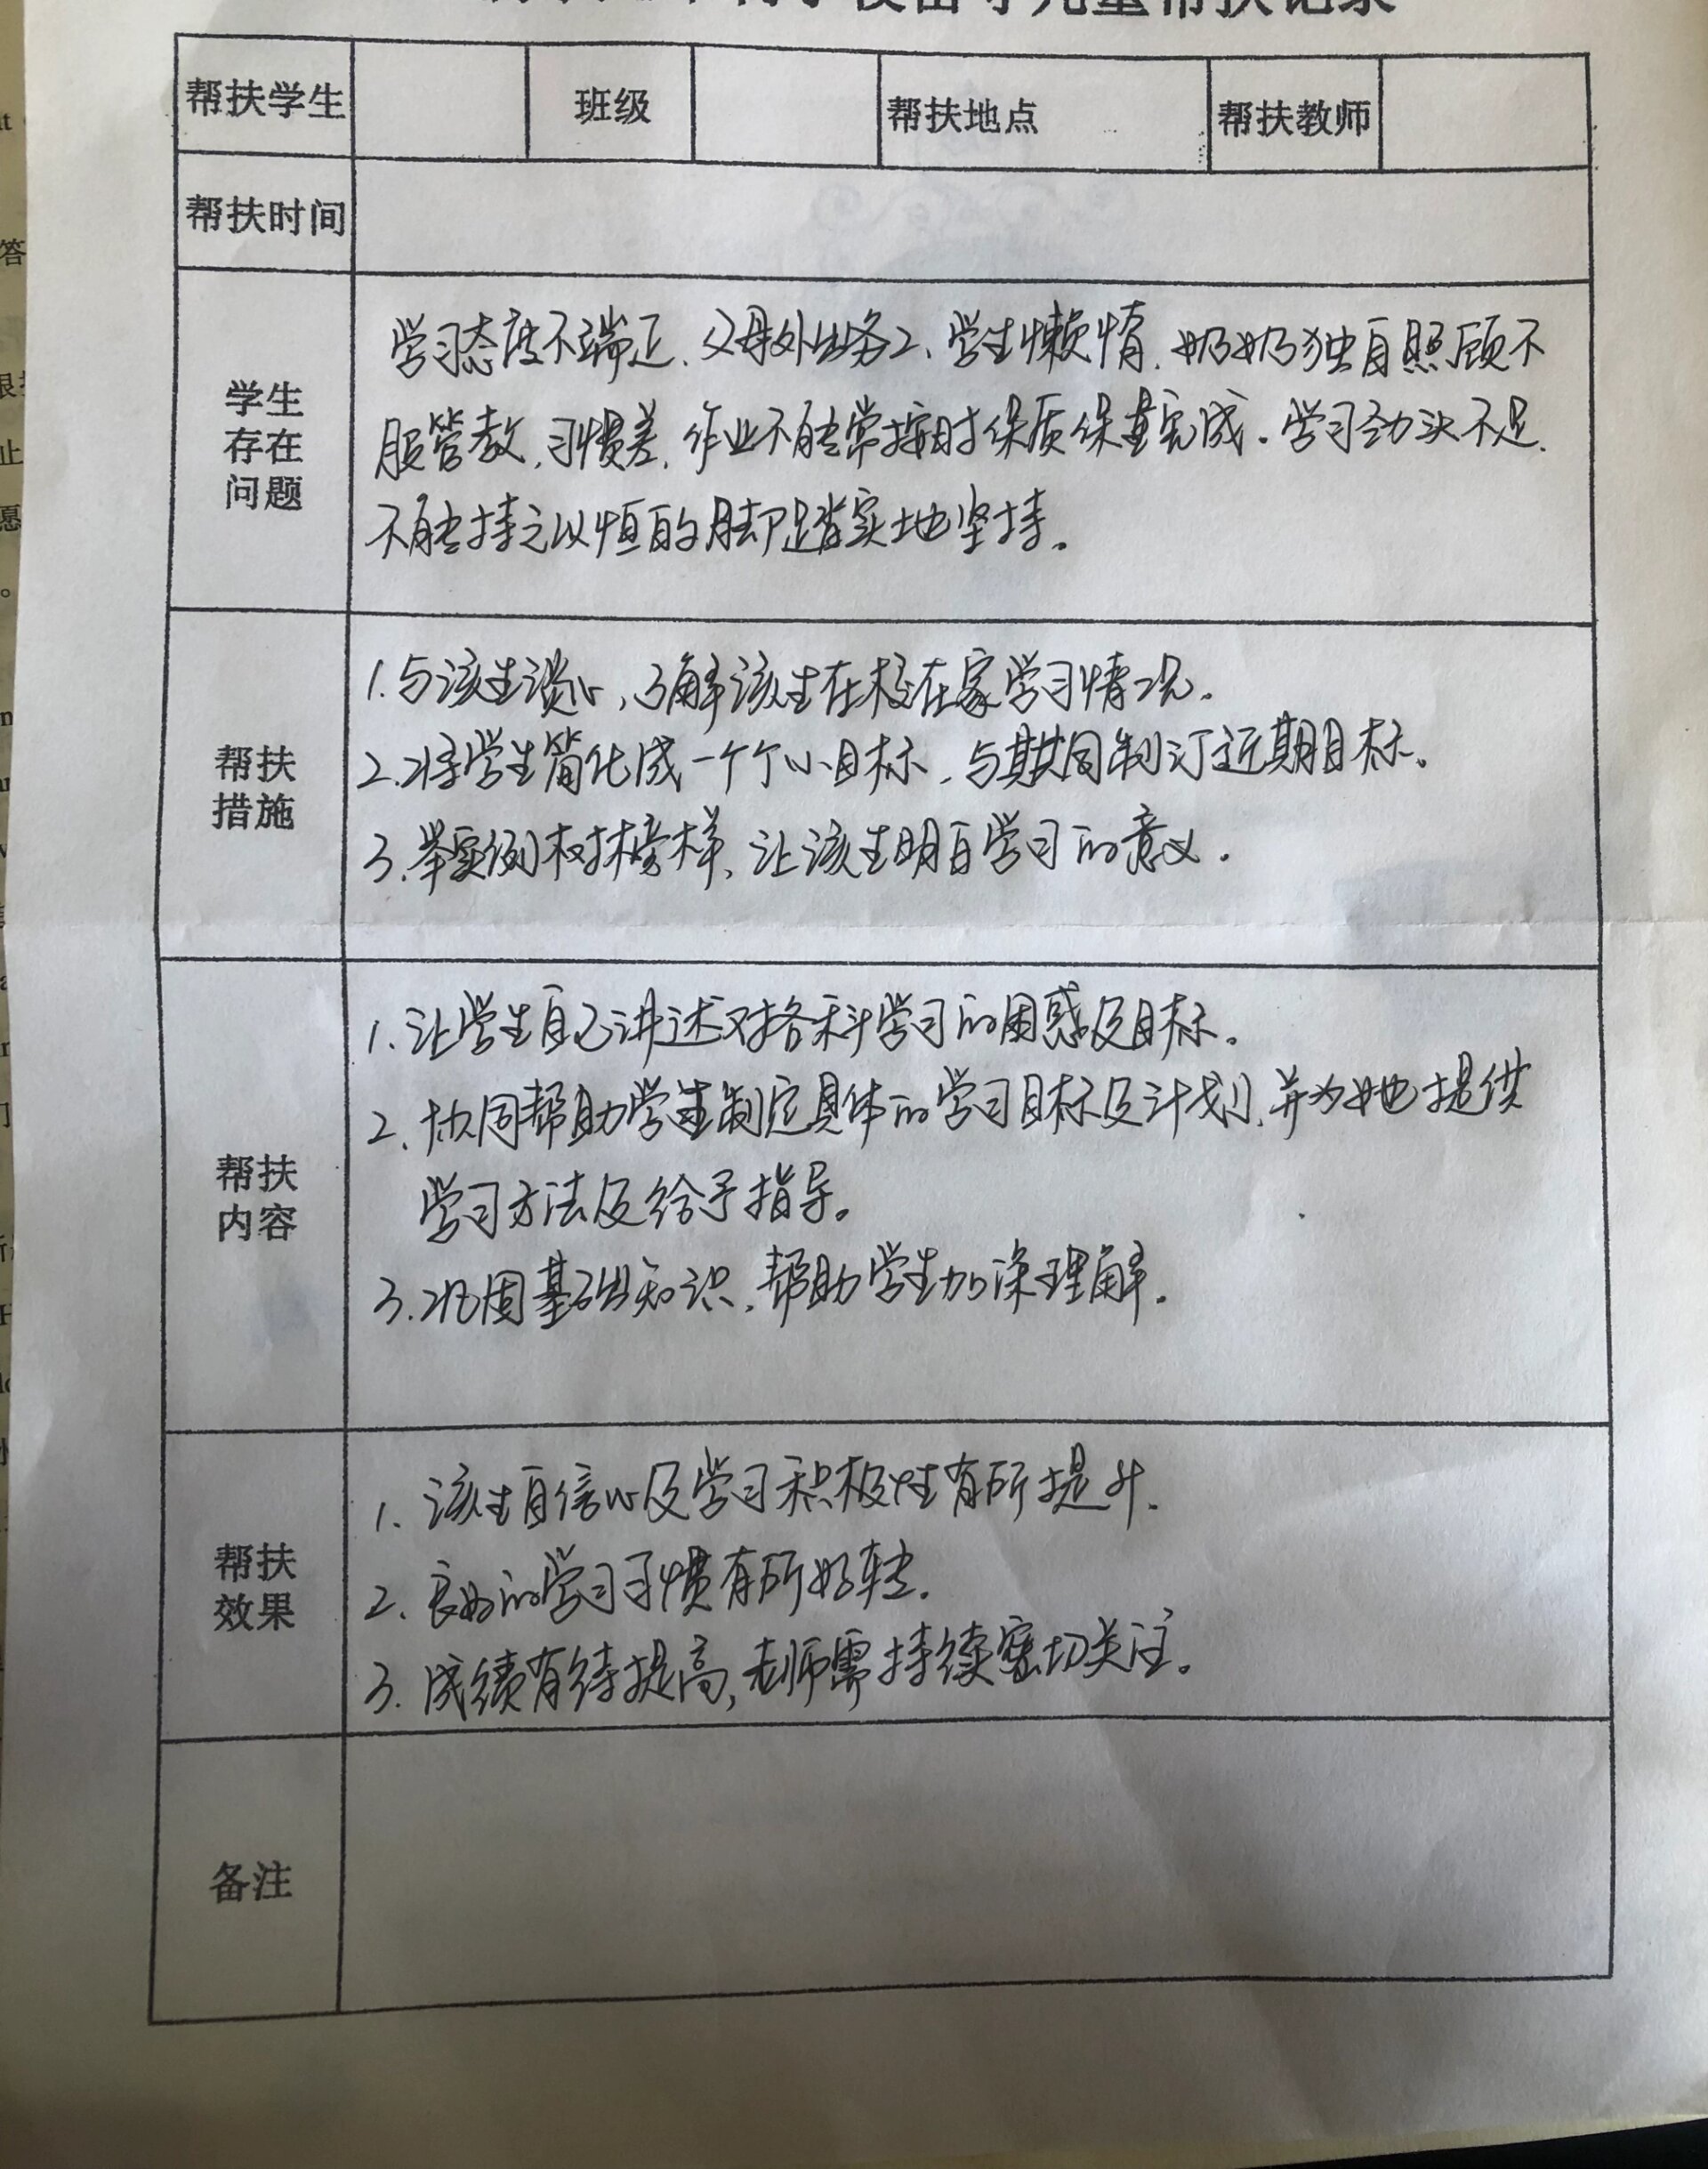 校留守儿童帮扶记录
帮扶学生 班级 帮扶地点 帮扶教师
帮扶时间
学生
存在
问题
学习态度不端正、父母外出务工、学生懒惰、奶奶独自照顾不
服管教、习惯差、作业不能常按时保质保量完成。学习劲头不足、
不能持之以恒的脚踏实地坚持。
帮扶
措施
1.与该生谈心,了解该生在校在家学习情况。
2.将学生简化成一个个小目标、与其共同制订近期目标。
3.举实例树榜样、让该生明白学习的意义。
帮扶
内容
1.让学生自己讲述对各科学习的困惑及目标。
2、协同帮助学生制定具体的学习目标及计划、并为她提供
学习方法及给予指导。
3.巩固基础知识、帮助学生加深理解。
帮扶
效果
1、该生自信心及学习积极性有所提升、
2、良好的学习习惯有所好转.
3.成绩有待提高,老师需持续密切关注。
备注